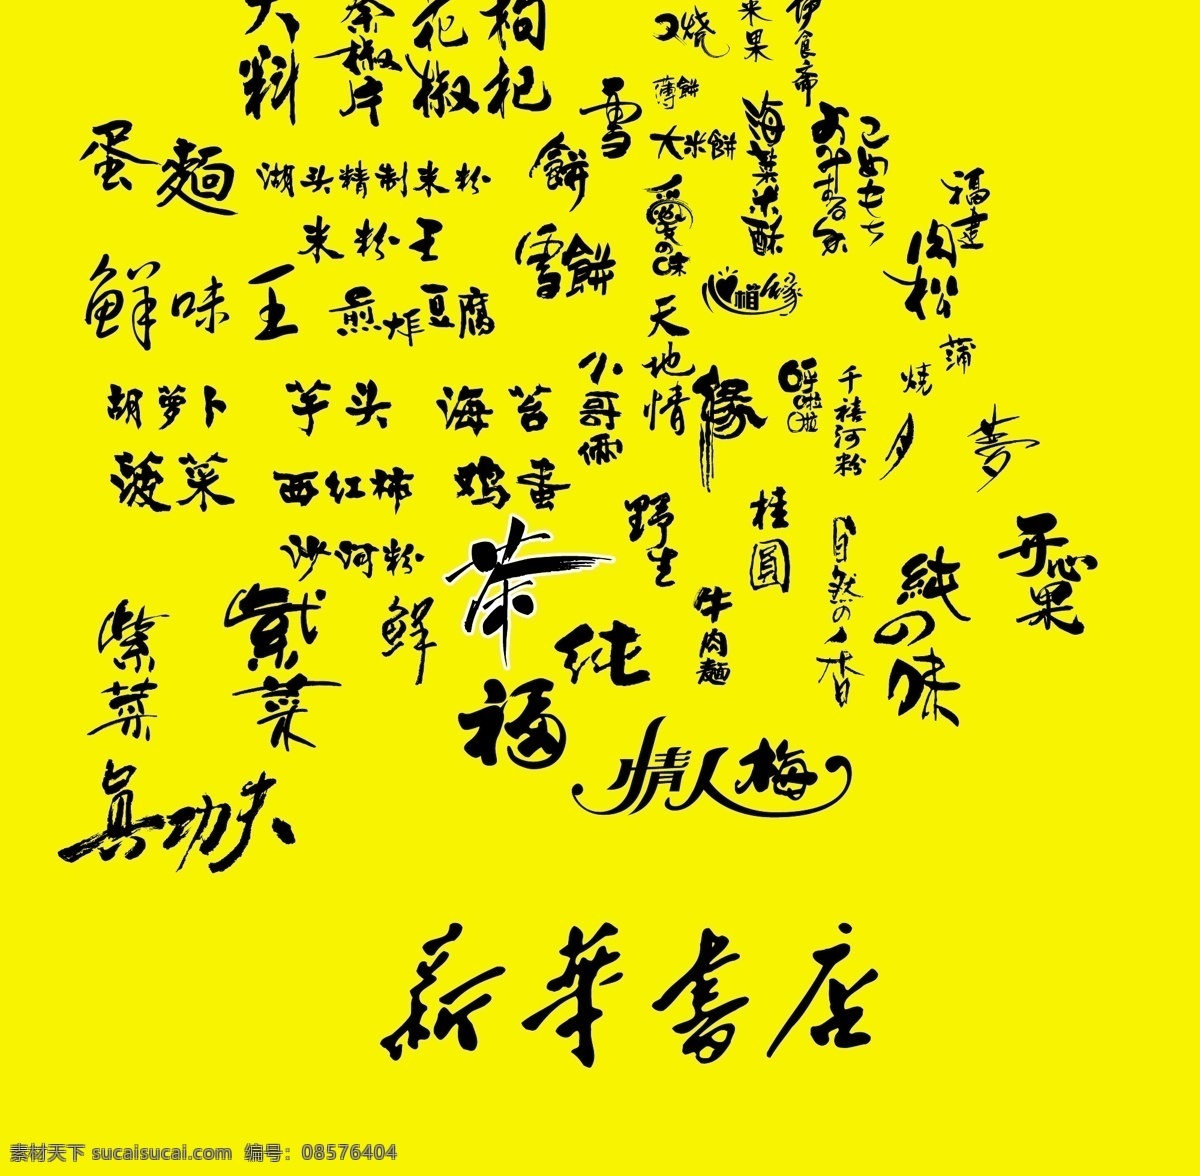 大料
茶椒片
花椒
枸杞
叉烧
米果
伊食斋
薄餅
雪
大米餅
海菜米酥
おみまるの
こめもち
蛋麵
湖头精制米粉
餅
愛の味
福建
肉松
米粉王
雪餅
鮮味王
煎炸豆腐
相缘
天地情
蒲燒
小哥俩
缘
呼啦啦
千禧河粉
月
夢
胡萝卜
芋头
海苔
菠菜
西红柿
鸡蛋
沙河粉
茶
野生
桂圓
自然の香
純の味
开心果
紫菜
紫菜
鲜
牛肉麵
纯
福
情人梅
真功夫
新華書店
素材天下 sucaisucai.com 编号：08576404